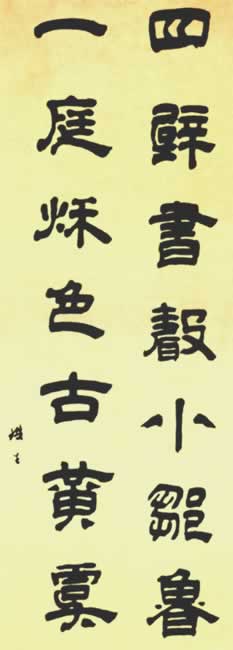 四壁書聲小鄒魯
一庭秌色古黃虞